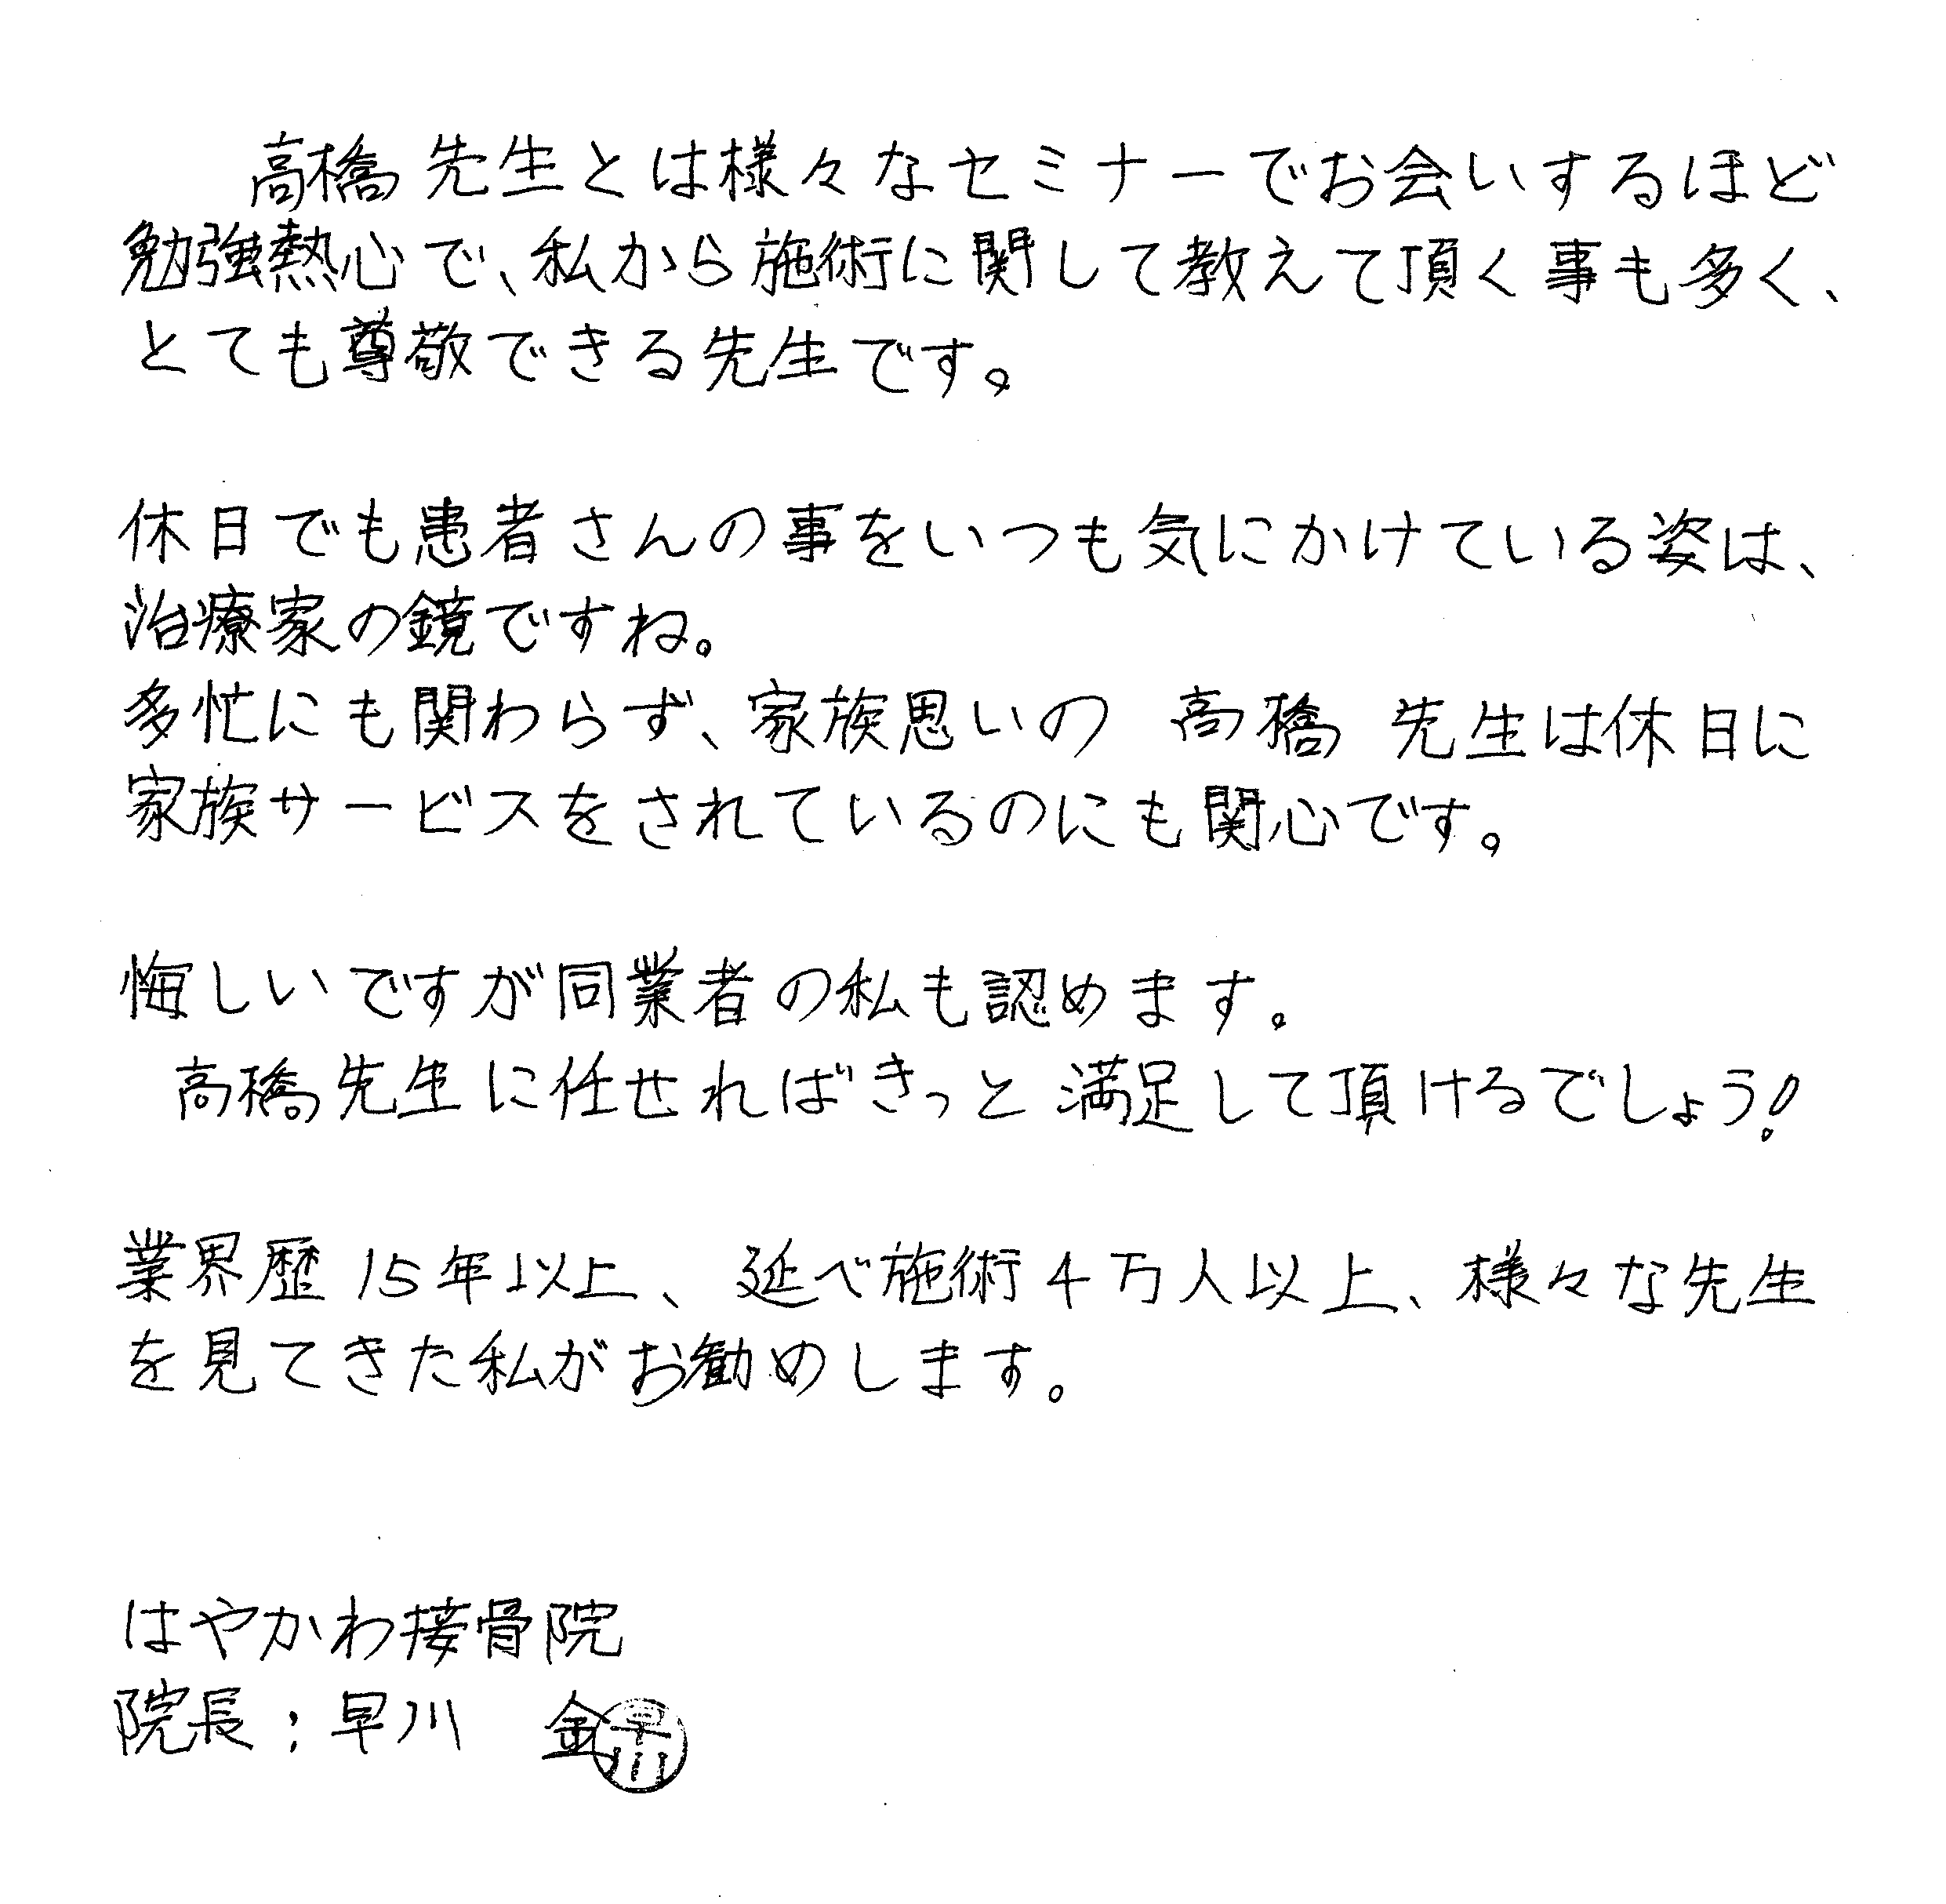 高橋先生とは様々なセミナーでお会いするほど
勉強熱心で、私から施術に関して教えて頂く事も多く、
とても尊敬できる先生です。
休日でも患者さんの事をいつも気にかけている姿は、
治療家の鏡ですね。
多忙にも関わらず、家族思いの 高橋 先生は休日に
家族サービスをされているのにも関心です。
悔しいですが同業者の私も認めます。
高橋先生に任せればきっと満足して頂けるでしょう!
業界歴15年以上、延べ施術4万人以上、様々な先生
を見てきた私がお勧めします。
はやかわ接骨院
院長:早川 金
早川